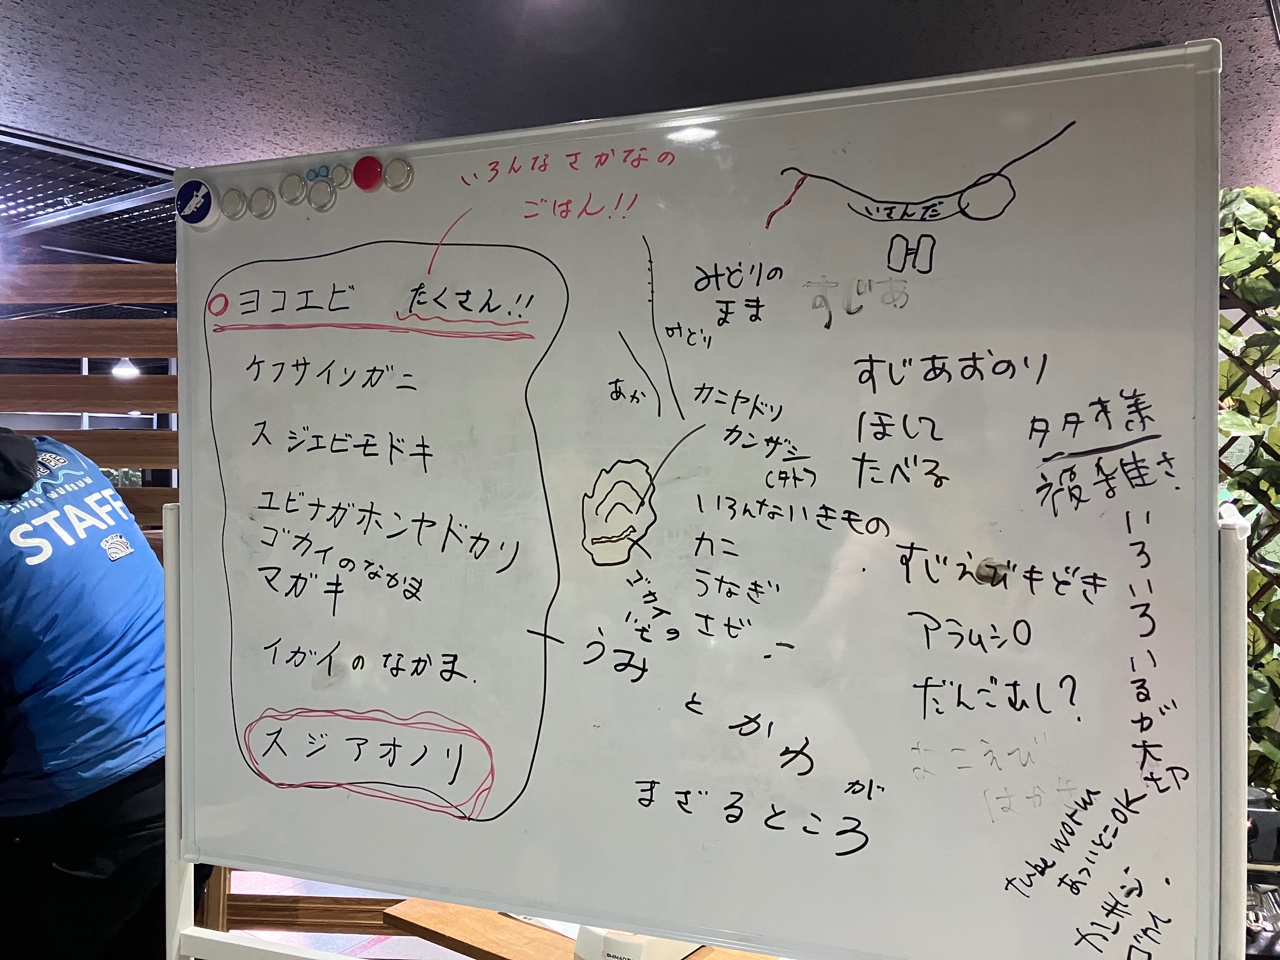 いろんなさかなの
ごはん!!
ヨコエビ たくさん!!
ケフサイソガニ
スジエビモドキ
ユビナガホンヤドカリ
ゴカイのなかま
マガキ
イガイのなかま.
スジアオノリ
みどり
あか
みどりの
まま
すじあ
カニヤドリ
カンザシ
いろんないきもの
カニ
うなぎ
ゴカイ
うみ
と かわ
が
まざるところ
すじあおのり
ほして
たべる
すじえびもどき
アラムシロ
だんごむし?
よこえび
タタ様
複雑さ
いろいろいるが大切
tube worm
あついとこOK
ゴカイ
RIVER MUSEUM
STAFF